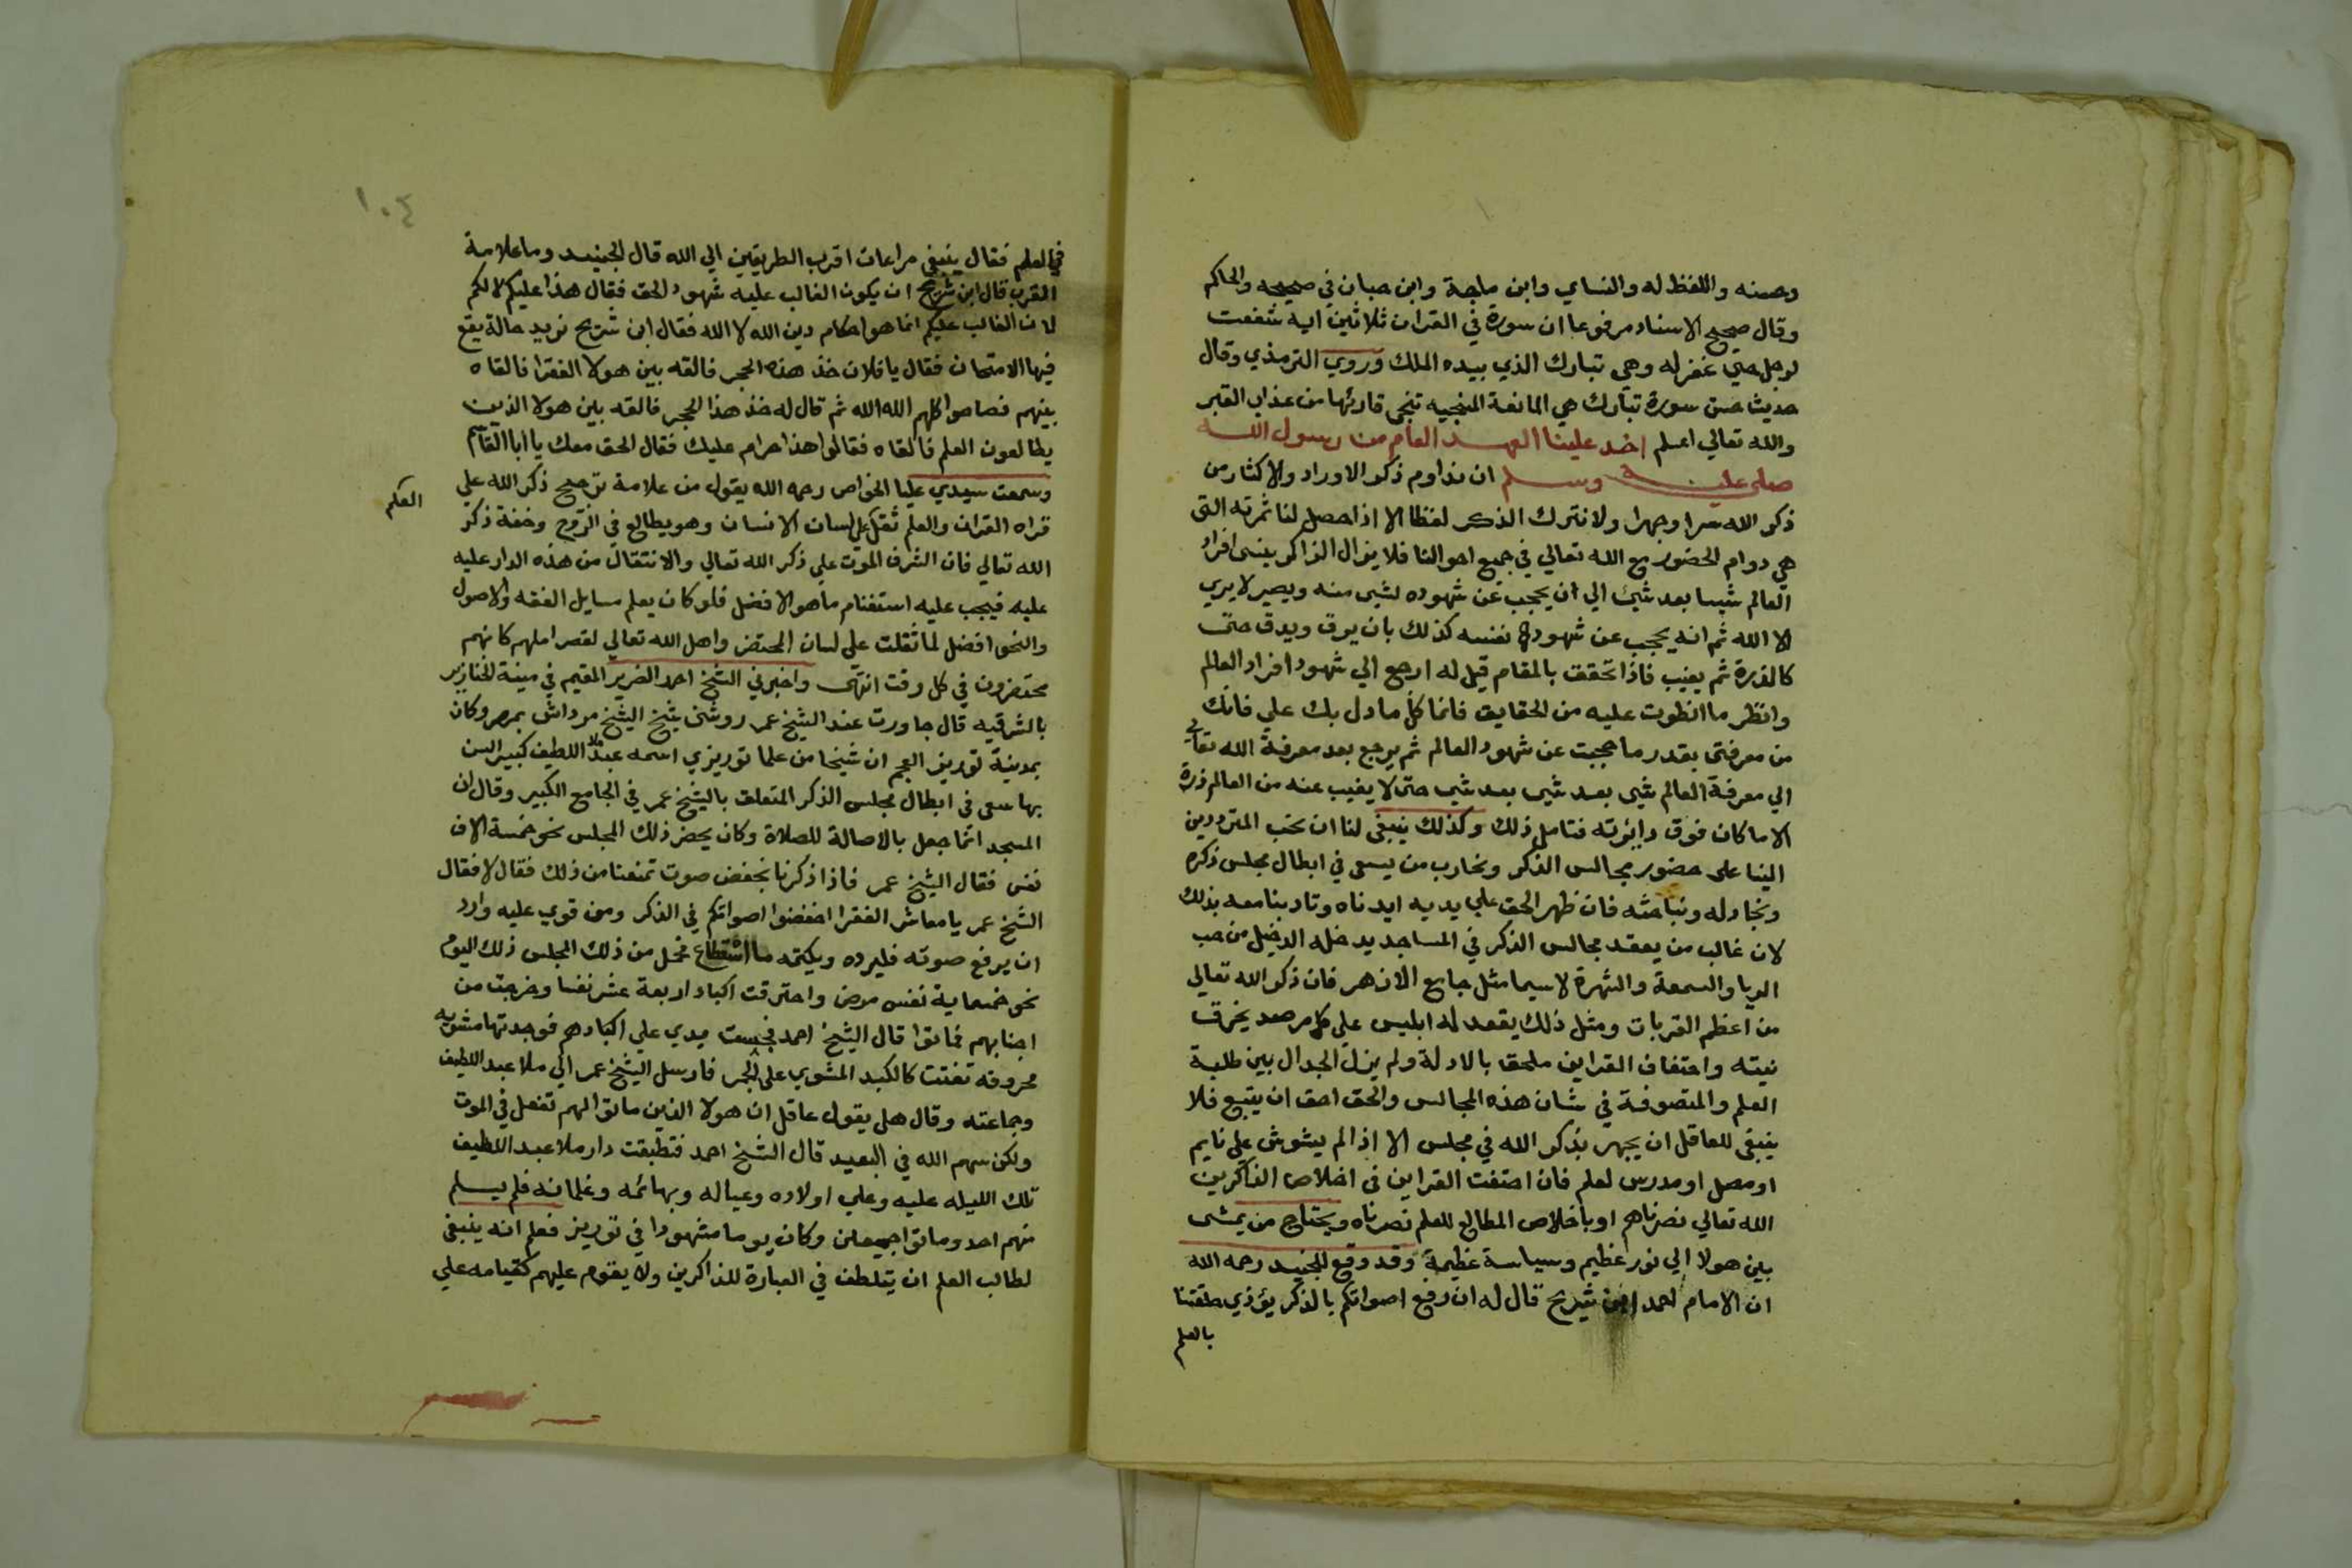 وحسنه واللفظ له والنساي وابن ماجة وابن حبان في صحيحه والحاكم
وقال صحيح الاسناد مرفوعا ان سورة في القران ثلاثين اية شفعت
لرجل حتي غفر له وهي تبارك الذي بيده الملك وروي الترمذي وقال
حديث حسن سورة تبارك هي المانعة المنجيه تنجي قارئها من عذاب القبر
والله تعالي اعلم اخذ علينا العهد العام من رسول الله
صلي عليه وسلم ان نداوم ذكر الاوراد والاكثار من
ذكر الله سرا وجهرا ولا نترك الذكر لفظا الا اذا حصل لنا ثمرته التي
هي دوام الحضور مع الله تعالي في جميع احوالنا فلا يزال الذاكر ينسى افراد
العالم شيسا بعد شيئ الي ان يحجب عن شهوده لشي منه ويصير لا يري
الا الله ثم انه يحجب عن شهود نفسه كذلك بان يرق ويدق حتى
كالذرة ثم يغيب فاذا تحققت بالمقام قيل له ارجع الي شهود افراد العالم
وانظر ما انطوت عليه من الحقايق فانما كل ما دل بك علي فانك
من معرفتي بقدر ما حجبت عن شهود العالم ثم يرجع بعد معرفة الله تعالي
الي معرفة العالم شي بعد شي بعد شي حتى لا يغيب عنه من العالم ذرة
الا ما كان فوق دايرته فتامل ذلك وكذلك ينبغي لنا ان نحب المترددين
الينا على حضور مجالس الذكر ونحارب من يسعى في ابطال مجلس ذكره
ونجادله ونباحثه فان ظهر الحق علي يديه ايدناه وتادبنا معه بذلك
لان غالب من يعقد مجالس الذكر في المساجد يدخله الدخيل من حب
الريا والسمعة والشهرة لا سيما مثل جامع الازهر فان ذكر الله تعالي
من اعظم القربات ومثل ذلك يقعد له ابليس علي كل مرصد يخرق
نيته واحتفاف القراين ملحق بالادلة ولم يزل الجدال بين طلبة
العلم والمتصوفة في شان هذه المجالس والحق احق ان يتبع فلا
ينبغي للعاقل ان يجهر بذكر الله في مجلس الا اذا لم يشوش علي نايم
او مصل او مدرس لعلم فان احتفت القراين في اخلاص الذاكرين
الله تعالي نصرناهم او باخلاص المطالع للعلم نصرناه ويحتاج من يمشى
بين هولا الي نور عظيم وسياسة عظيمة وقد وقع للجنيد رحمه الله
ان الامام احمد ابن شريح قال له ان رفع اصواتكم بالذكر يؤذي حلقتنا
بالعلم
١٠٤
في العلم فقال ينبغي مراعات اقرب الطريقين الي الله قال الجنيد وما علامة
القرب قال ابن شريح ان يكون الغالب عليه شهود الحق فقال هذا عليكم لا لكم
لان الغالب عليكم انما هو احكام دين الله لا الله فقال ابن شريح نريد حالة يقع
فيها الامتحان فقال يا فلان خذ هذه الحجر فالقه بين هولا الفقرا فالقاه
بينهم فصاحوا كلهم الله الله ثم قال له خذ هذا الحجر فالقه بين هولا الذين
يطالعون العلم فالقاه فقالوا هذا حرام عليك فقال الحق معك يا ابا القاسم
وسمعت سيدي عليا الخواص رحمه الله يقول من علامة ترجيح ذكر الله علي
قراه القران والعلم ثقل علي لسان الانسان وهو يطالع في الروح وخفة ذكر
العلم
الله تعالي فان اشرف الموت علي ذكر الله تعالي والانتقال من هذه الدار عليه
عليه فيجب عليه استغنام ما هو الافضل فلو كان يعلم مسايل الفقه والاصول
والنحو افضل لما ثقلت علي لسان المحتضر واهل الله تعالي لقصر املهم كانهم
محتضرون في كل وقت انتهى واخبرني الشيخ احمد الضرير المقيم في منية الخنازير
بالشرقيه قال جاورت عند الشيخ عمر روشني شيخ الشيخ مرداش بمصر وكان
بمدينة توريز العجم ان شيخا من علما توريزي اسمه ملا عبد اللطيف كبير السن
بها سعى في ابطال مجلس الذكر المتعلق بالشيخ عمر في الجامع الكبير وقال ان
المسجد انما جعل بالاصالة للصلاة وكان يحضر ذلك المجلس نحو خمسة الاف
نفس فقال الشيخ عمر فاذا ذكرنا بخفض صوت تمنعنا من ذلك فقال لا فقال
الشيخ عمر يا معاشر الفقرا اخفضوا اصواتكم في الذكر ومن قوي عليه وارد
ان يرفع صوته فليرده ويكتمه ما استطاع فحمل من ذلك المجلس ذلك اليوم
نحو خمسماية نفس مرض واحترقت اكباد اربعة عشر نفسا وخرجت من
اجنابهم فماتوا قال الشيخ احمد فجست بيدي علي اكبادهم فوجدتها مشويه
محروقه تفتت كالكبد المشوي على الجمر فارسل الشيخ عمر الي ملا عبد اللطيف
وجماعته وقال هل يقول عاقل ان هولا الذين ماتوا لهم تفعل في الموت
ولكن سهم الله في البعيد قال الشيخ احمد فتطبقت دار ملا عبد اللطيف
تلك الليله عليه وعلي اولاده وعياله وبهائمه وغلمانه فلم يسلم
منهم احد وماتوا اجمعين وكان يوما مشهودا في توريز فعلم انه ينبغي
لطالب العلم ان يتلطف في العبارة للذاكرين ولا يقوم عليهم كقيامه علي